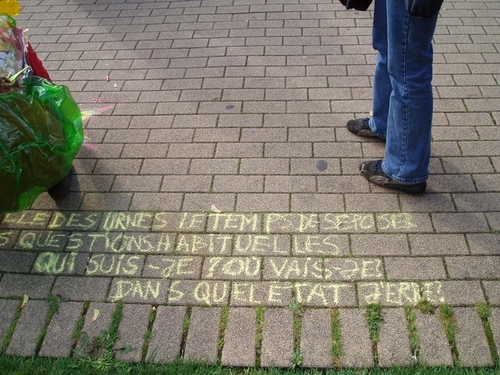 LLE DES URNES LE TEMPS DE SE POSER
S QUESTIONS HABITUELLES
QUI SUIS-JE ? OU VAIS-JE?
DANS QUEL ETAT J'ERRE?